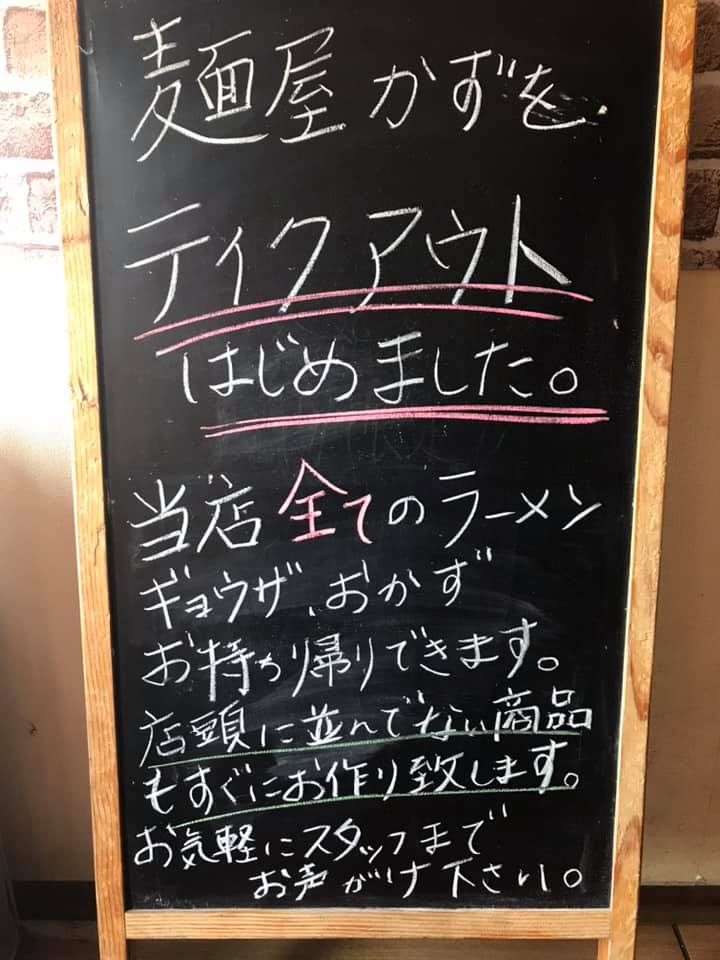 麺屋 かずを
テイクアウト
はじめました。
当店 全てのラーメン
ギョウザ、おかず
お持ち帰りできます。
店頭に並んでない商品
もすぐにお作り致します。
お気軽にスタッフまで
お声がけ下さい。